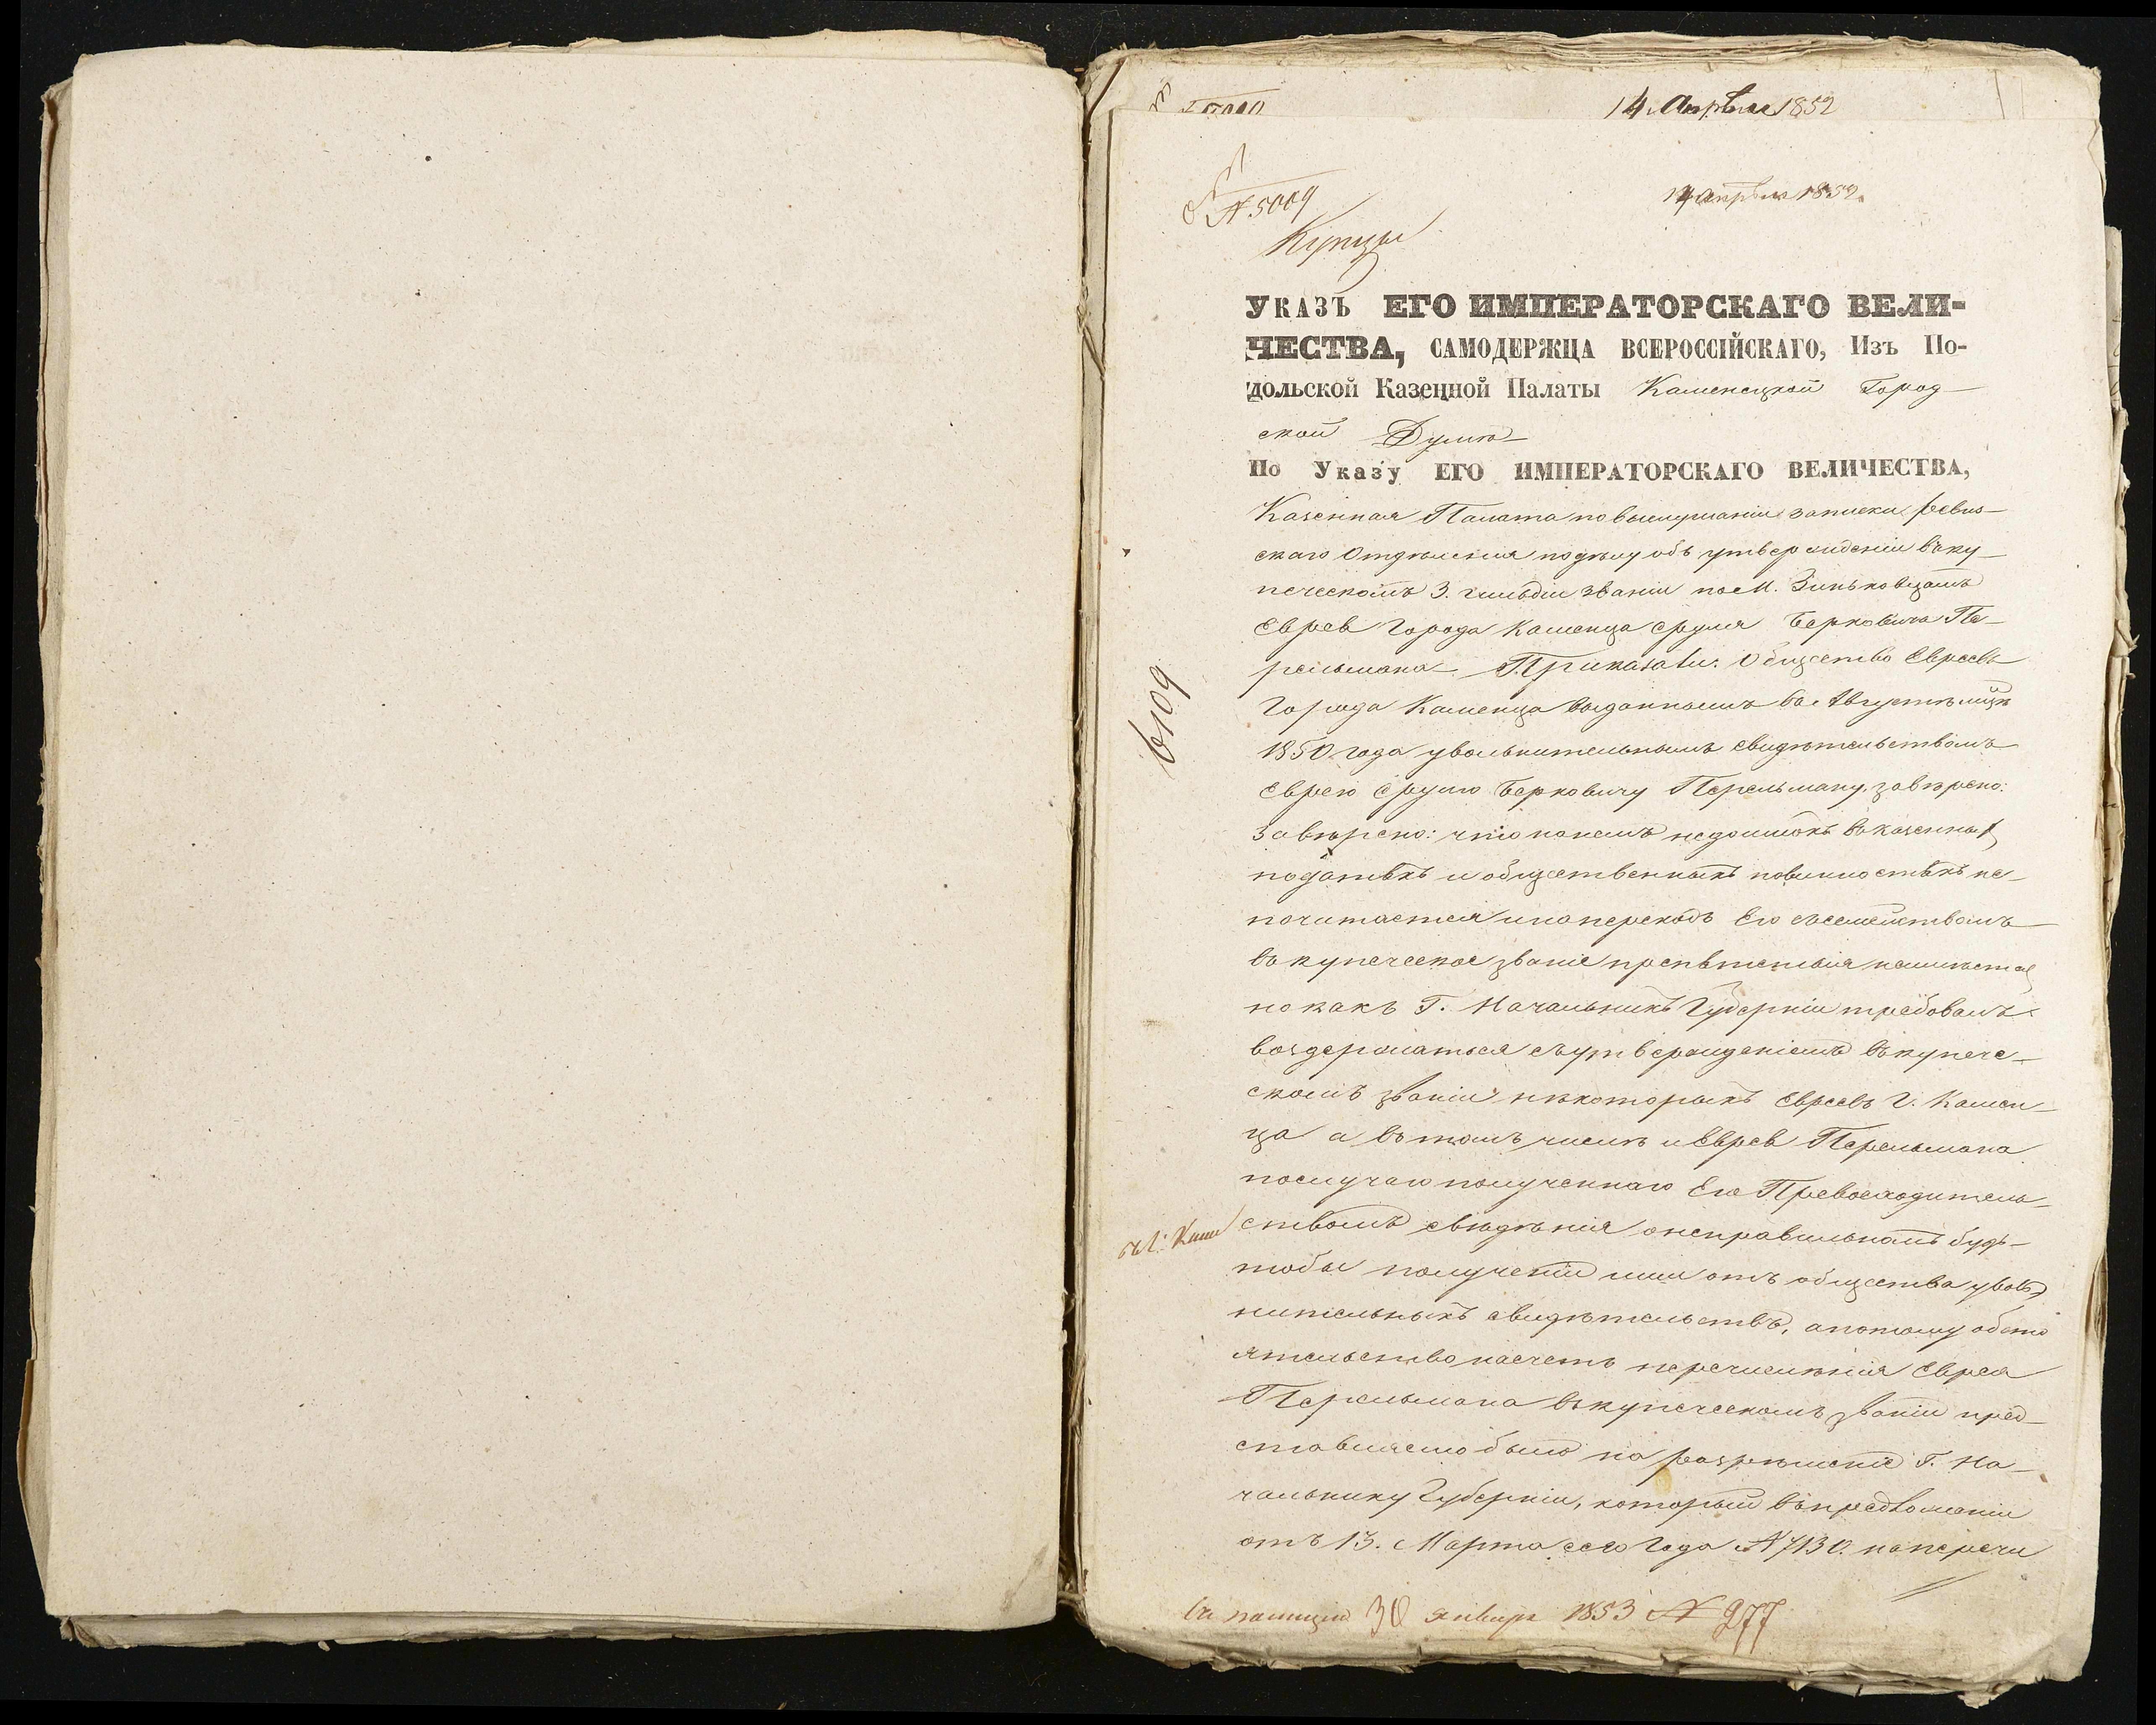 14 Апреля 1852
14 апреля 1852.
№ 5009
Купцы
Указъ ЕГО ИМПЕРАТОРСКАГО ВЕЛИ-
ЧЕСТВА, САМОДЕРЖЦА ВСЕРОССІЙСКАГО, Изъ По-
дольской Казенной Палаты Каменецкой Город-
ской Думѣ
По Указу ЕГО ИМПЕРАТОРСКАГО ВЕЛИЧЕСТВА,
Казенная Палата по выслушаніи записки ревиз-
скаго Отдѣленія по дѣлу объ утвержденіи въ ку-
печескомъ 3. гильдіи званіи по М. Зиньковцамъ
Еврея города Каменца Сруля Берковича Пе-
рельмана Приказали: Общество Евреевъ
города Каменца выданнымъ въ Августѣ мцѣ
1850 года увольнительнымъ свидѣтельствомъ
Еврею Срулю Берковичу Перельману, завѣрено:
завѣрено: что на немъ недоимокъ въ казенных
податяхъ и общественныхъ повинностяхъ не-
почитается и на переходъ Его съ семействомъ
въ купеческое званіе препятствія неимѣется
но какъ Г. Начальникъ Губерніи требовалъ
воздержаться съ утвержденіемъ въ купече-
скомъ званіи нѣкоторыхъ Евреевъ г. Камен-
ца а въ томъ числѣ и Еврея Перельмана
по случаю полученнаго Его Превосходитель-
ствомъ свѣдѣнія о неправильномъ будь-
тобы полученіи ими отъ общества уволь
нительныхъ свидѣтельствъ, а потому обсто
ятельство насчетъ перечисленія Еврея
Перельмана въ купеческомъ званіи пред-
ставляемо было на разрѣшеніе Г. На-
чальнику Губерніи, который въ предложеніи
отъ 13. Марта сего года № 7130. на перечи
6109
въ полицію 30 января 1853 № 977